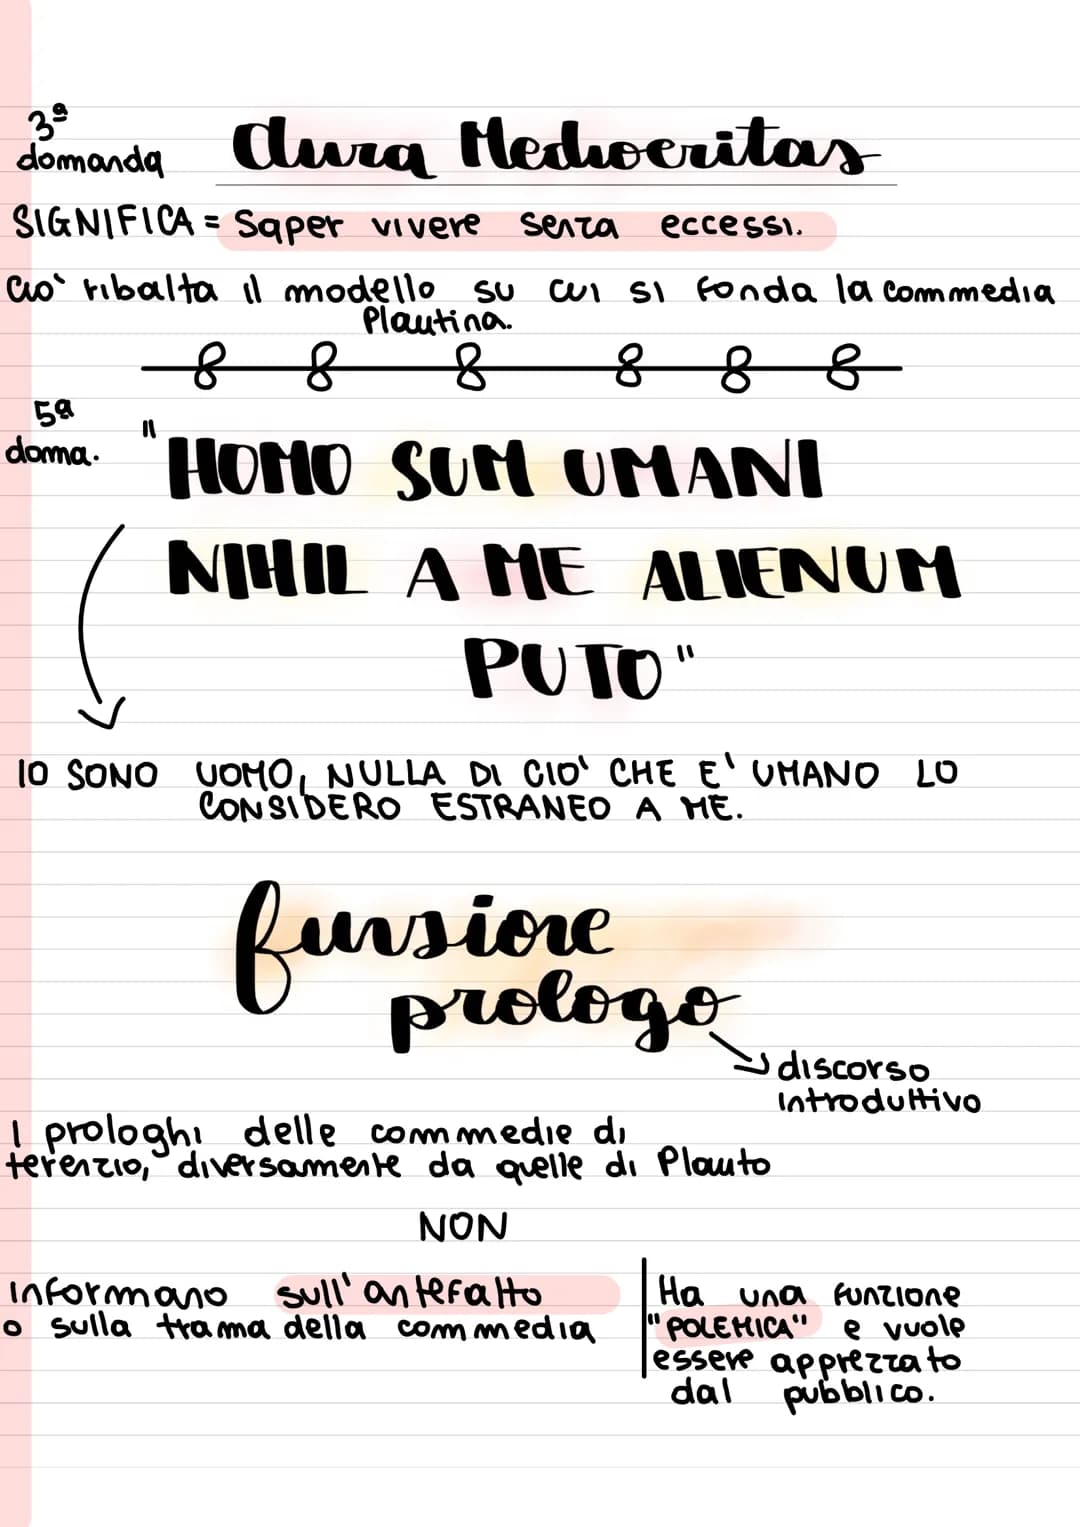 3ª
domanda
aura Mediocritas
SIGNIFICA = Saper vivere senza eccessi.
Ciò ribalta il modello su cui si fonda la commedia
Plautina.
5ª
doma.
"HOMO SUM UMANI
NIHIL A ME ALIENUM
PUTO"
IO SONO UOMO, NULLA DI CIO' CHE E' UMANO LO
CONSIDERO ESTRANEO A ME.
funsione
prologo
discorso
introduttivo
I prologhi delle commedie di
terenzio, diversamente da quelle di Plauto
NON
informano sull'antefatto
o sulla trama della commedia
Ha una funzione
"POLEMICA" e vuole
essere apprezzato
dal pubblico.